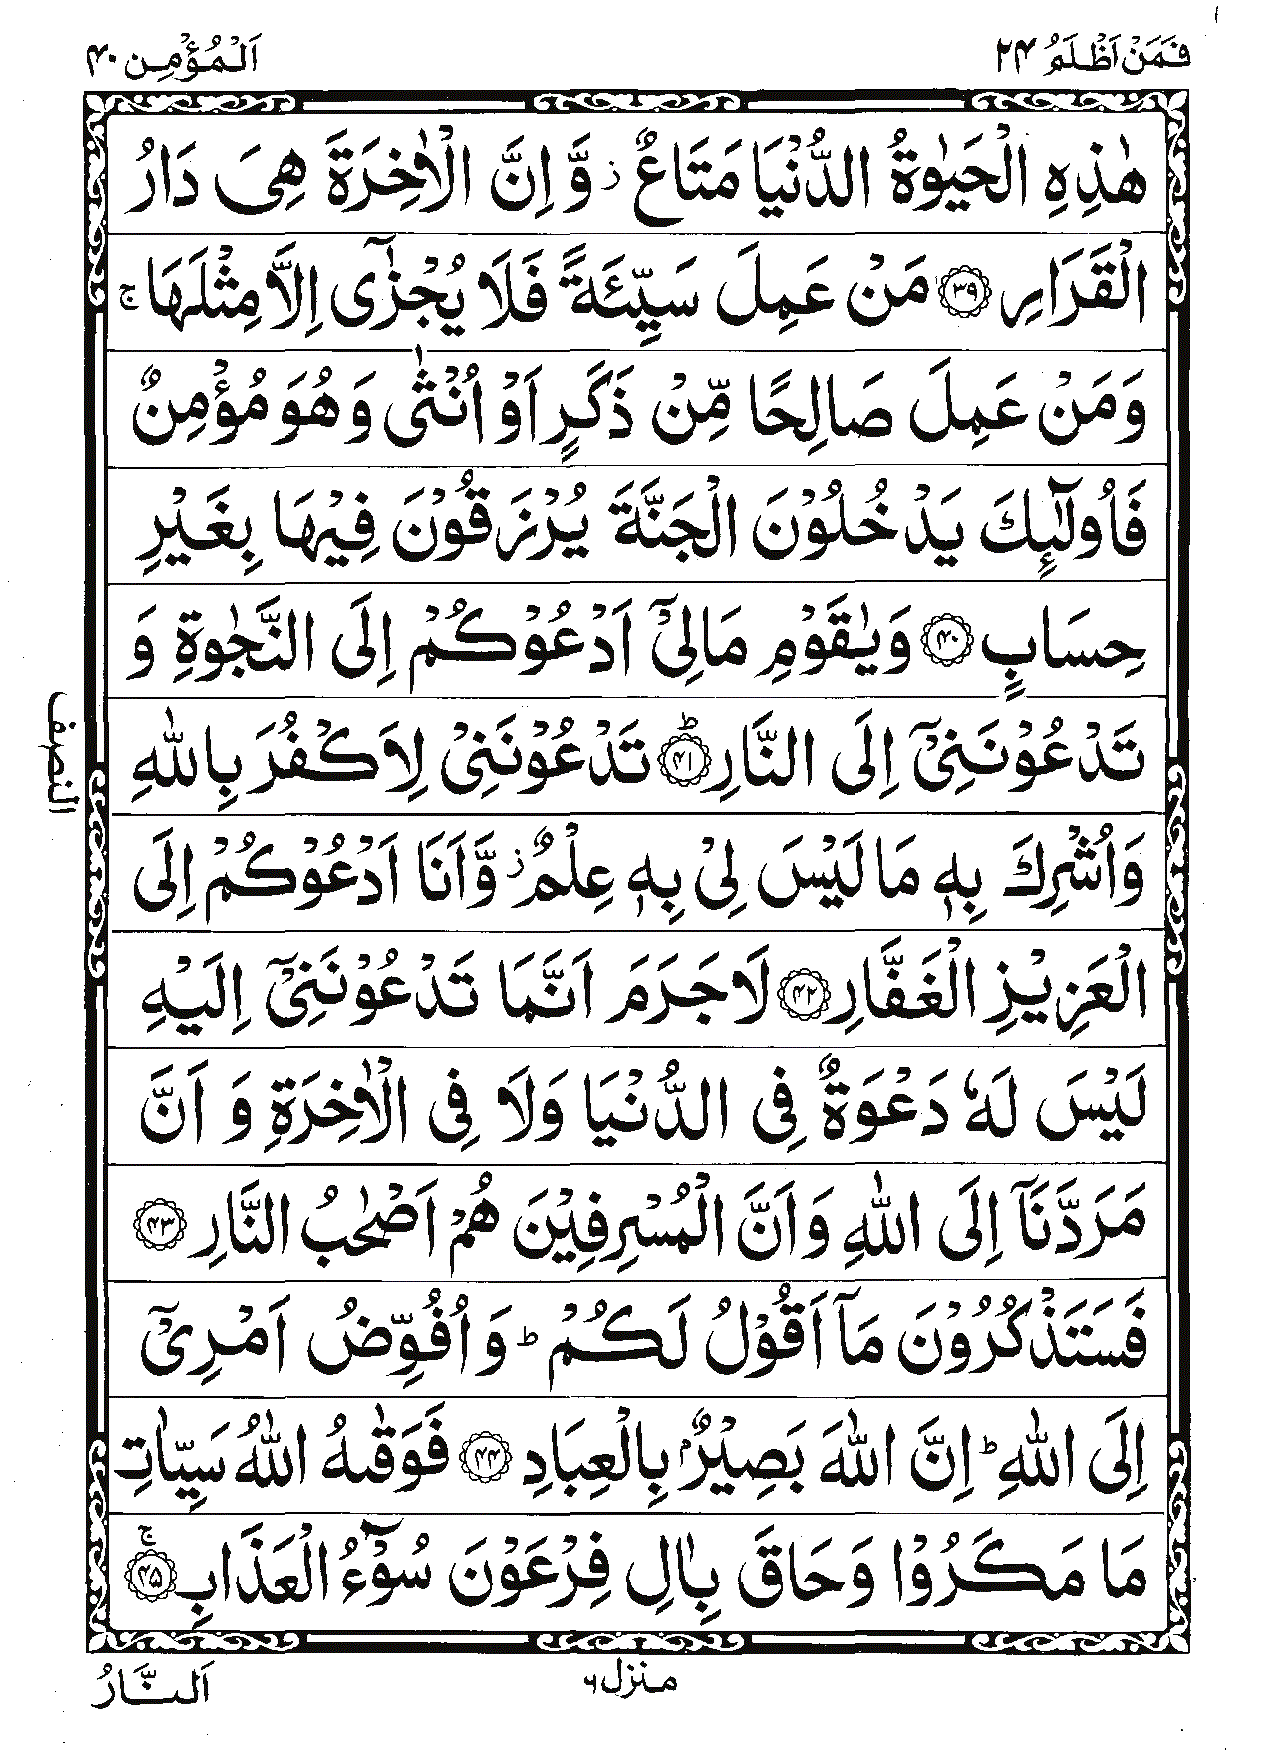 فَمَنْ اَظْلَمُ ٢٤
اَلْمُؤْمِن ٤٠
هٰذِهِ الْحَيٰوةُ الدُّنْيَا مَتَاعٌ ز وَّ اِنَّ الْاٰخِرَةَ هِىَ دَارُ
الْقَرَارِ ﴿٣٩﴾ مَنْ عَمِلَ سَيِّئَةً فَلَا يُجْزٰٓى اِلَّا مِثْلَهَا ج
وَمَنْ عَمِلَ صَالِحًا مِّنْ ذَكَرٍ اَوْ اُنْثٰى وَهُوَ مُؤْمِنٌ
فَاُولٰٓئِكَ يَدْخُلُوْنَ الْجَنَّةَ يُرْزَقُوْنَ فِيْهَا بِغَيْرِ
حِسَابٍ ﴿٤٠﴾ وَيٰقَوْمِ مَالِىْٓ اَدْعُوْكُمْ اِلَى النَّجٰوةِ وَ
تَدْعُوْنَنِىْٓ اِلَى النَّارِ ﴿٤١﴾ ط تَدْعُوْنَنِىْ لِاَكْفُرَ بِاللّٰهِ
وَاُشْرِكَ بِهٖ مَا لَيْسَ لِىْ بِهٖ عِلْمٌ ز وَّاَنَا اَدْعُوْكُمْ اِلَى
الْعَزِيْزِ الْغَفَّارِ ﴿٤٢﴾ لَا جَرَمَ اَنَّمَا تَدْعُوْنَنِىْٓ اِلَيْهِ
لَيْسَ لَهٗ دَعْوَةٌ فِى الدُّنْيَا وَلَا فِى الْاٰخِرَةِ وَ اَنَّ
مَرَدَّنَآ اِلَى اللّٰهِ وَاَنَّ الْمُسْرِفِيْنَ هُمْ اَصْحٰبُ النَّارِ ﴿٤٣﴾
فَسَتَذْكُرُوْنَ مَآ اَقُوْلُ لَكُمْ ط وَاُفَوِّضُ اَمْرِىْٓ
اِلَى اللّٰهِ ط اِنَّ اللّٰهَ بَصِيْرٌۢ بِالْعِبَادِ ﴿٤٤﴾ فَوَقٰىهُ اللّٰهُ سَيِّاٰتِ
مَا مَكَرُوْا وَحَاقَ بِاٰلِ فِرْعَوْنَ سُوْٓءُ الْعَذَابِ ﴿٤٥﴾ ج
النصف
منزل ٦
اَلنَّارُ